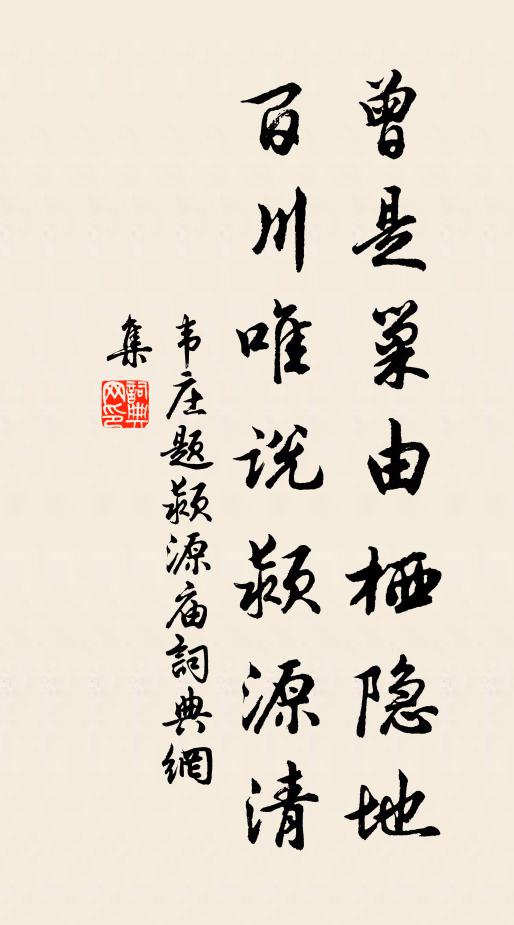 曾是巢由栖隐地
百川唯说颍源清
韦庄题颍源庙詞典網
集
詞典网印